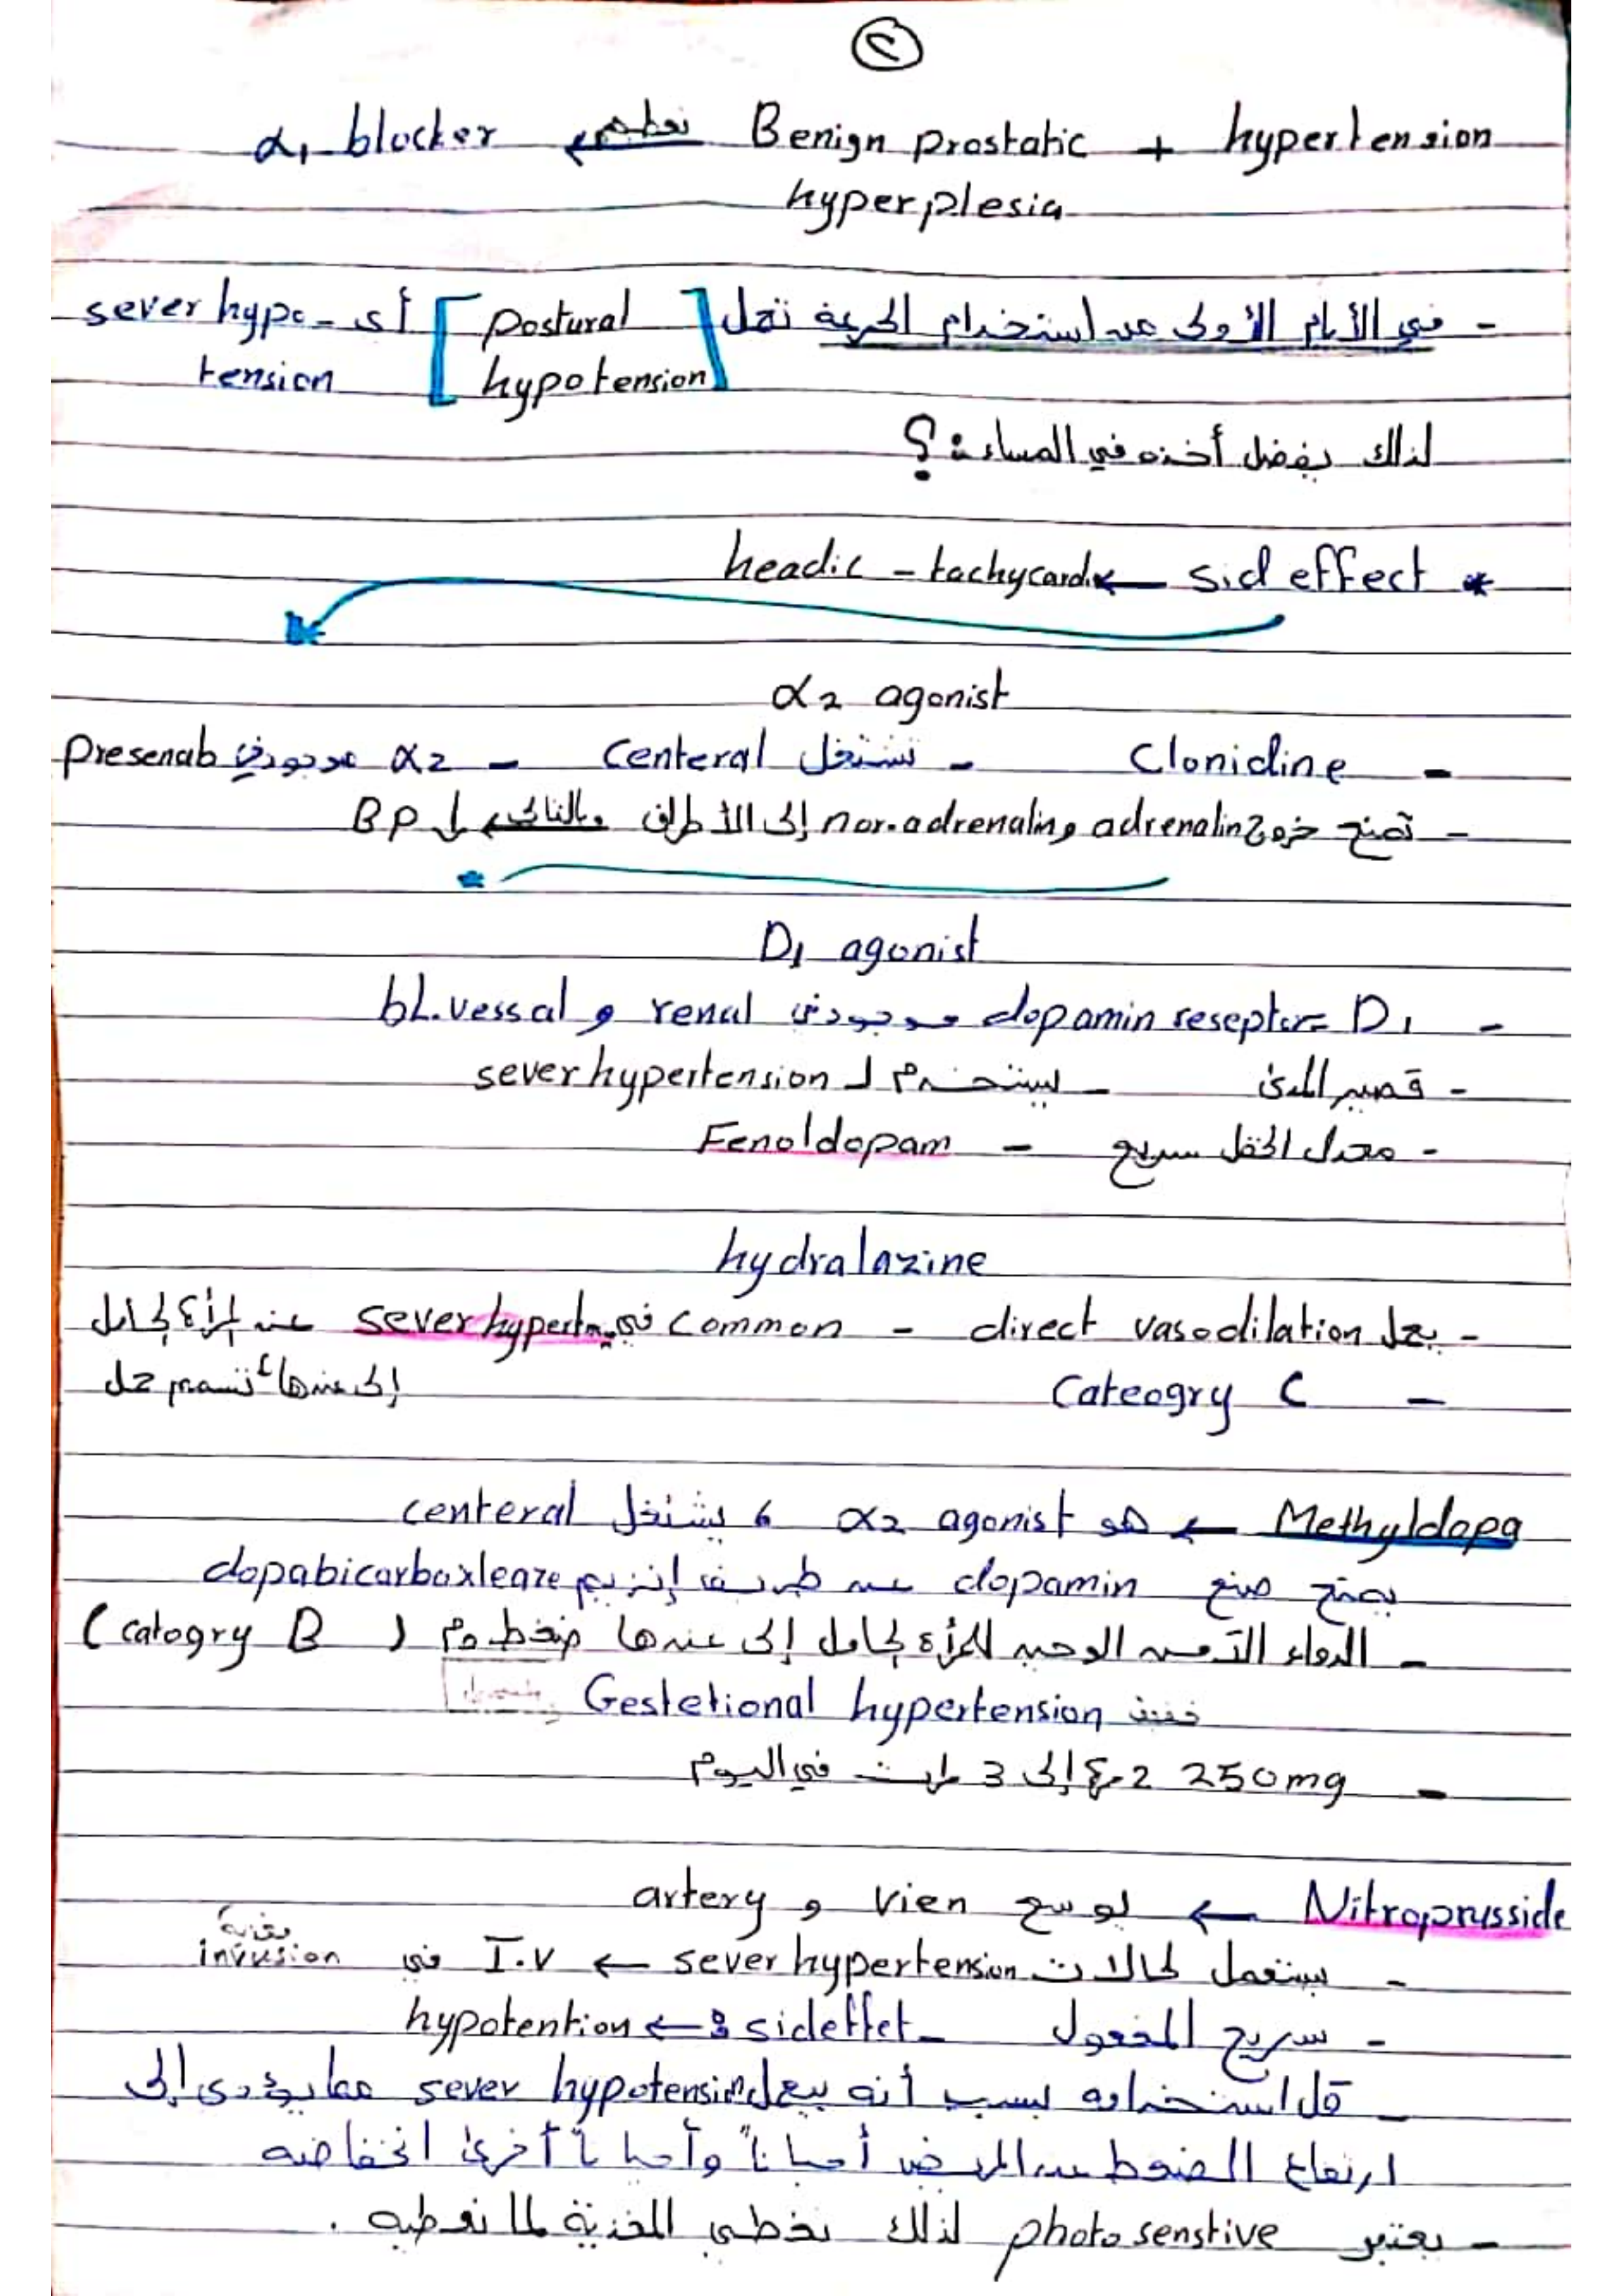 ٢
hypertension + Benign prostatic نعطيه ← α1 blocker
hyperplesia
- في الأيام الأولى عند استخدام الجرعة تعمل [postural أي sever hypo-
hypotension] tension
لذلك يفضل أخذه في المساء؟
* sid effect ← headic - tachycardi
α2 agonist
- Clonidine - تشتغل centeral - α2 موجود في Presenab
- تمنع خروج adrenalin و nor.adrenalin إلى الأطراف وبالتالي ↓ BP
D1 agonist
- D1 = dopamin reseptor موجود في renal و bl.vessal
- قصير المدى - يستخدم لـ sever hypertension
- معدل سريع - Fenoldopam
hydralazine
- يعمل direct vasodilation - common في sever hypert عند المرأة الحامل
- Cateogry C إلى عندها تسمم حمل
Methyldopa ← هو α2 agonist ، يشتغل centeral
يمنع صنع dopamin عن طريق إنزيم dopabicarboxleaze
- الدواء الوحيد للمرأة الحامل إلى عندها ضغط دم (catogry B)
Gestetional hypertension
- 250mg 2 إلى 3 مرات في اليوم
Nitroprusside ← يوسع vien و artery
- يستعمل لحالات sever hypertension ← I.V في invusion
- سريح المفعول - sideffet : ← hypotention
- قل استخدامه بسبب أنه بيعمل sever hypotension مما يؤدي إلى
ارتفاع الضغط عند المريض أحياناً وأحياناً أخرى انخفاضه
- يعتبر photo senstive لذلك نغطي المغذية لما نعطيه .